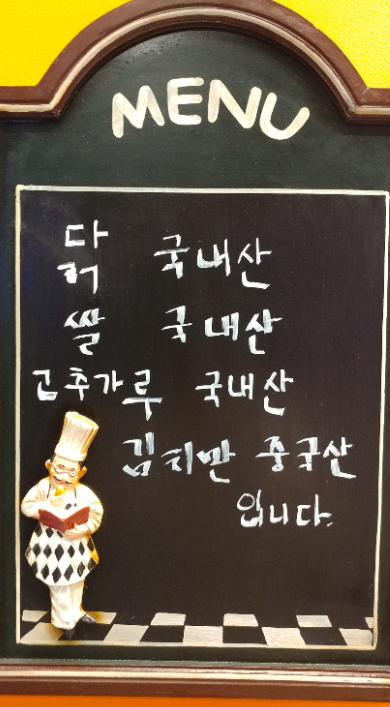 MENU
닭 국내산
쌀 국내산
고추가루 국내산
김치만 중국산
입니다.